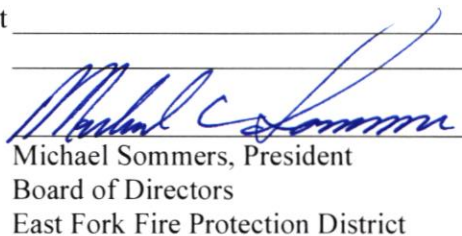 t
Michael C Sommers
Michael Sommers, President
Board of Directors
East Fork Fire Protection District